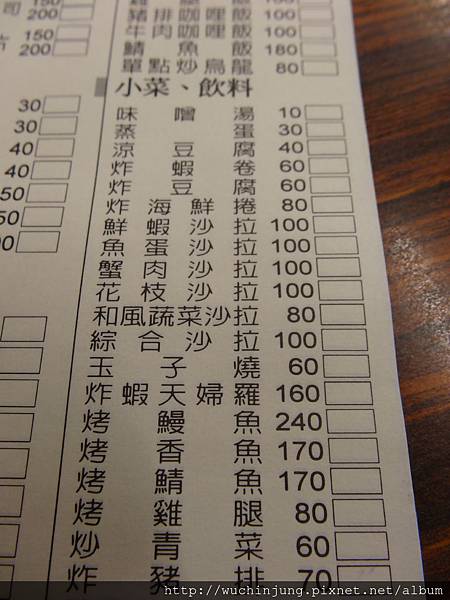 司 150
200
150
片 200
30
30
40
40
50
50
00
豬排咖哩飯 100
牛肉咖哩飯 100
鯖魚飯 180
單點炒烏龍 80
小菜、飲料
味噌湯 10
蒸蛋 30
涼豆腐 40
炸蝦卷 60
炸豆腐 60
炸海鮮捲 80
鮮蝦沙拉 100
魚蛋沙拉 100
蟹肉沙拉 100
花枝沙拉 100
和風蔬菜沙拉 80
綜合沙拉 100
玉子燒 60
炸蝦天婦羅 160
烤鰻魚 240
烤香魚 170
烤鯖魚 170
烤雞腿 80
炒青菜 60
炸豬排 70
http://wuchinjung.pixnet.net/album